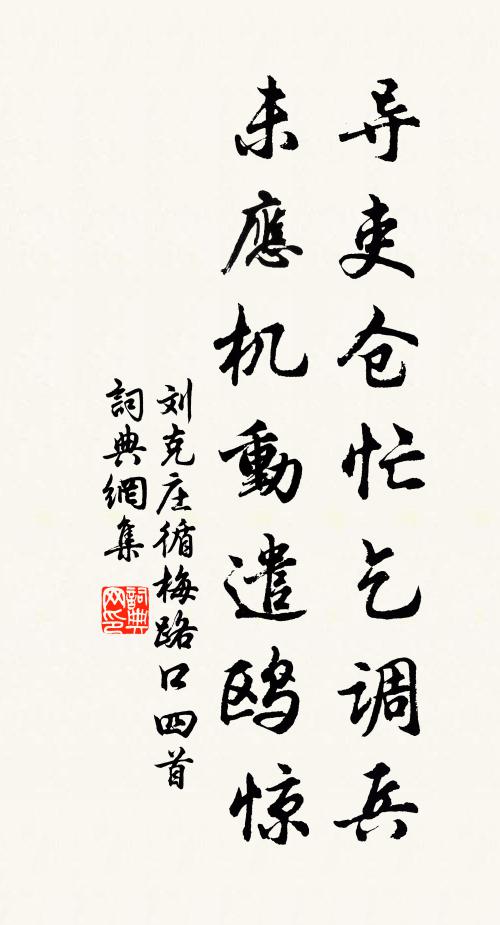 导吏仓忙乞调兵
未應机動遣鸥惊
刘克庄循梅路口四首
詞典網集
詞典网印